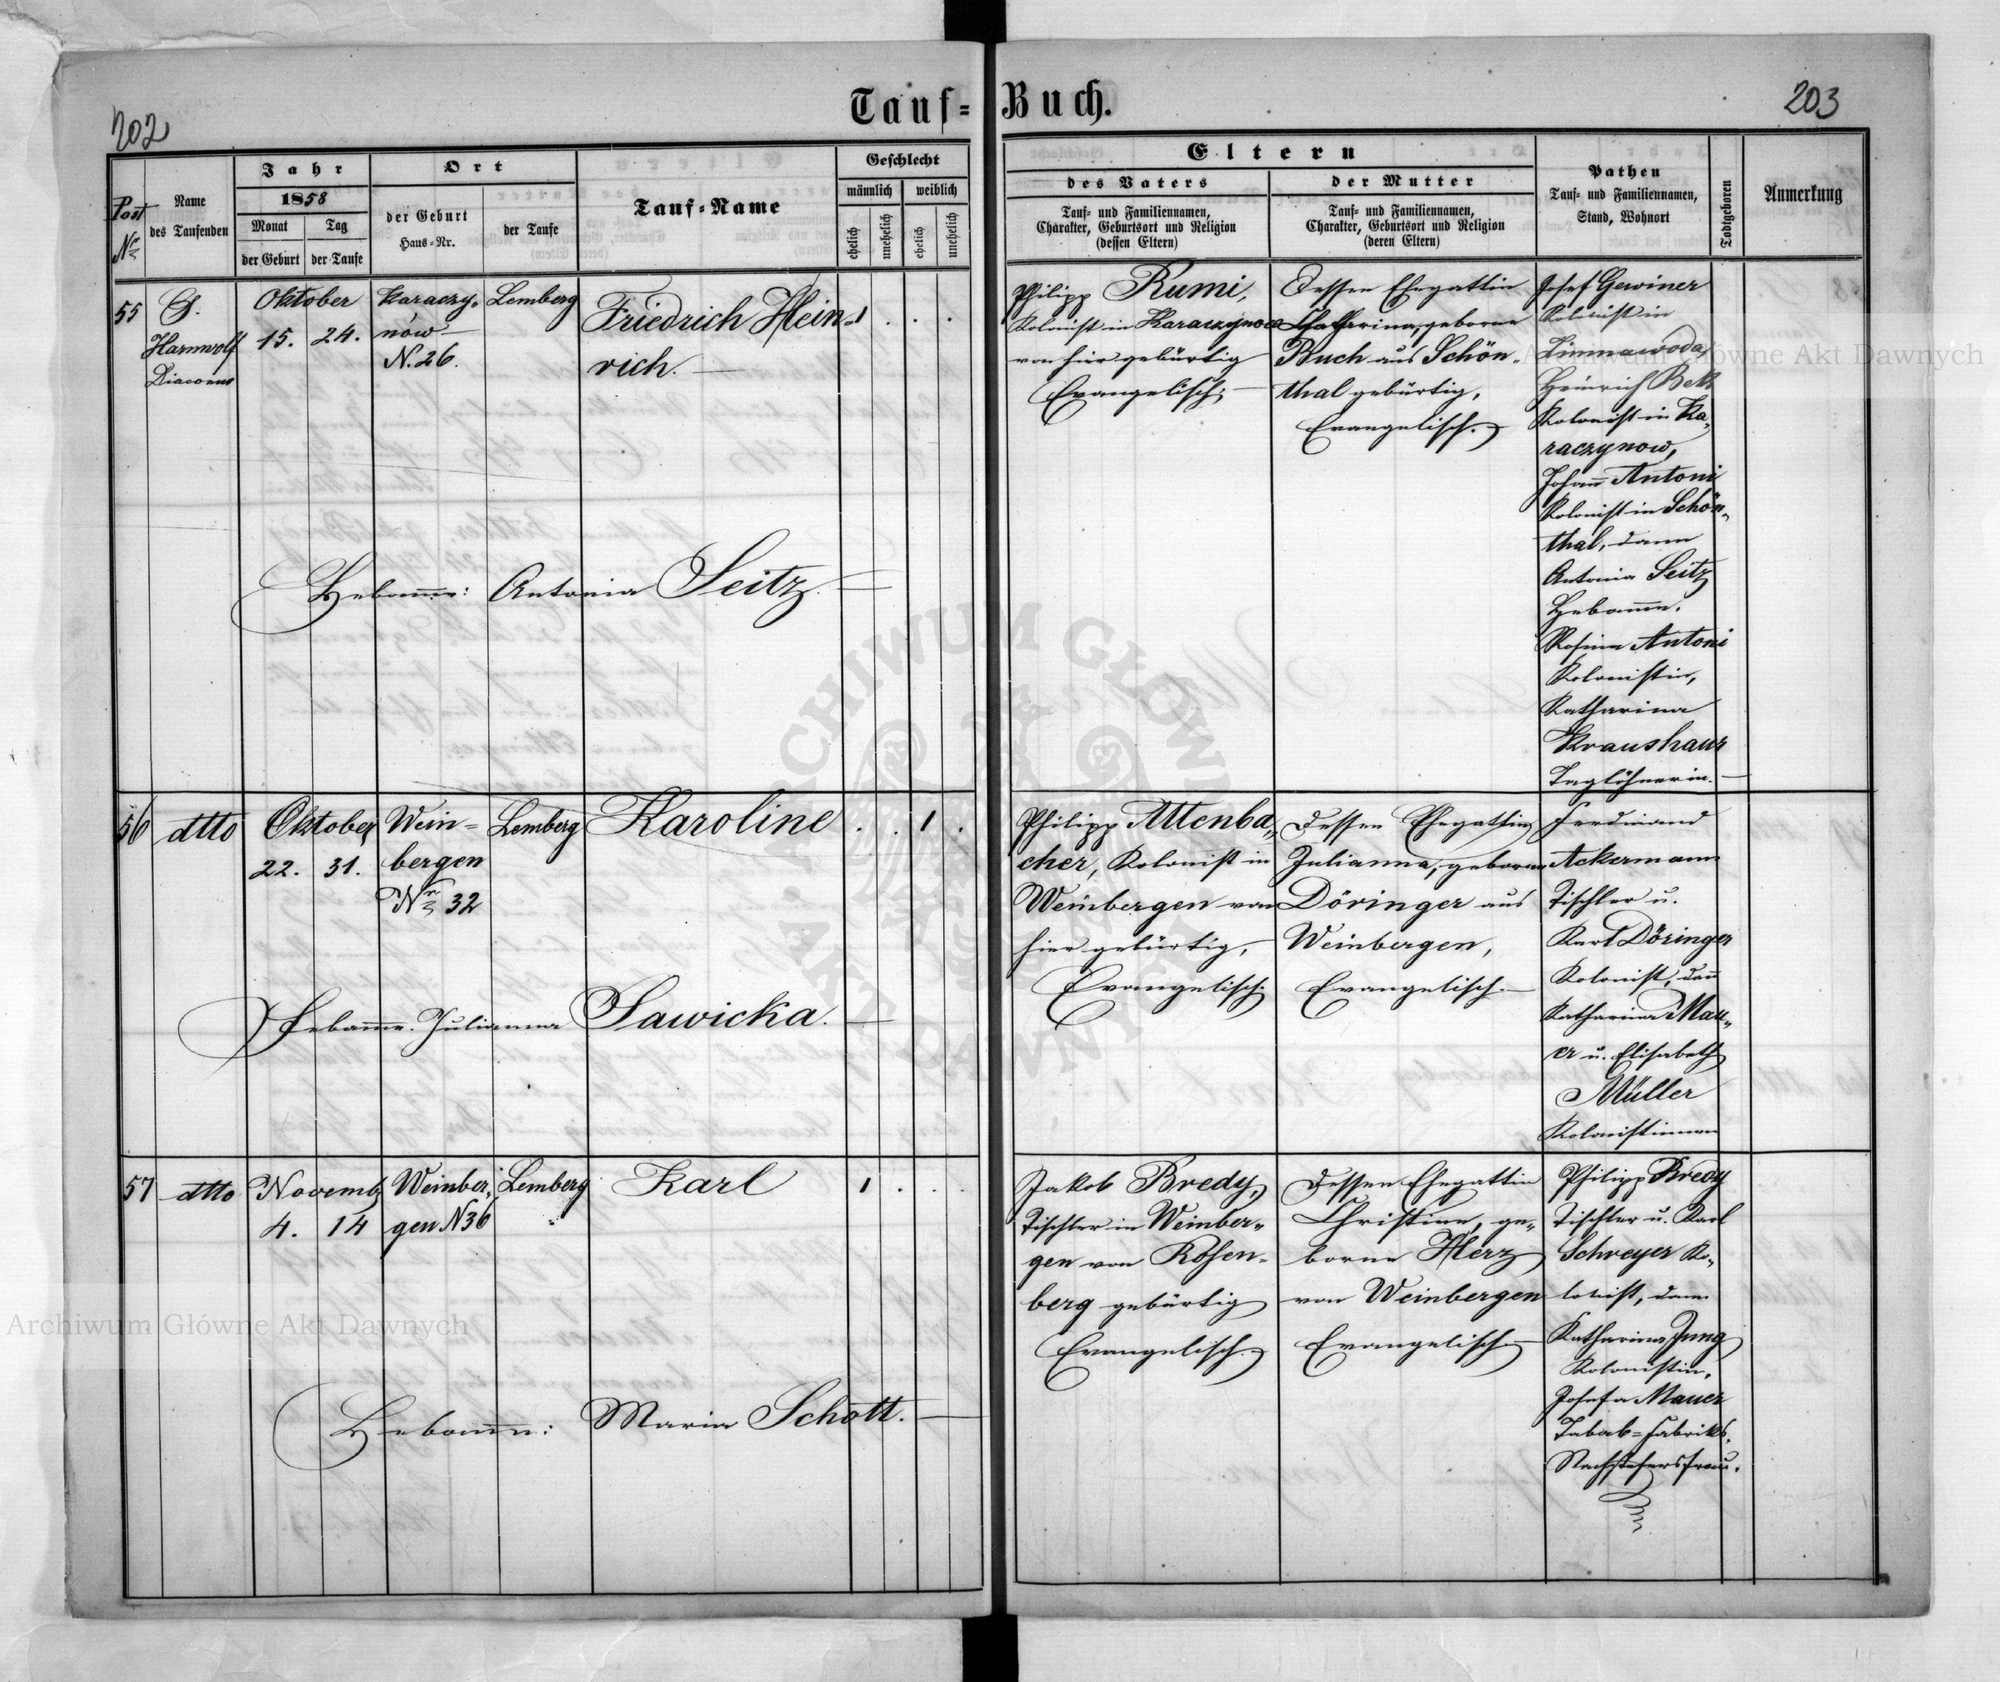 Tauf-
202
Post
Nr
Name
des Taufenden
Jahr
1858
Monat
Tag
der Geburt
der Taufe
Ort
der Geburt
Haus-Nr.
der Taufe
Tauf-Name
Geschlecht
männlich
weiblich
ehelich
unehelich
ehelich
unehelich
55
G.
Harnwolf
Diaconus
Oktober
15. 24.
Karaczy-
nów
N. 26.
Lemberg
Friedrich Hein-
rich.
1 . . .
Hebamme: Antonia Seitz.
56
dtto
Oktober
22. 31.
Wein=
bergen
Nr 32
Lemberg
Karoline
. . 1 .
Hebamme. Julianna Sawicka.
57
dtto
Novemb
4. 14
Weinber-
gen N 36
Lemberg
Karl
1 . . .
Hebamme: Maria Schott.
Buch.
203
Eltern
des Vaters
Tauf- und Familiennamen,
Charakter, Geburtsort und Religion
(dessen Eltern)
der Mutter
Tauf- und Familiennamen,
Charakter, Geburtsort und Religion
(deren Eltern)
Pathen
Tauf- und Familiennamen,
Stand, Wohnort
Todtgeboren
Anmerkung
Philipp Rumi,
Kolonist in Karaczynow
von hier gebürtig
Evangelisch.
Dessen Ehegattin
Katharina, geborne
Buch aus Schön-
thal gebürtig,
Evangelisch.
Josef Gewiner
Kolonist in
Zimnawoda,
Heinrich Bek
Kolonist in Ka-
raczynow,
Johann Antoni
Kolonist in Schön-
thal, dann
Antonia Seitz
Hebamme.
Rosina Antoni
Kolonistin,
Katharina
Kraushaur
Taglöhnerin.
Philipp Attenba-
cher, Kolonist in
Weinbergen von
hier gebürtig,
Evangelisch.
Dessen Ehegattin
Julianna, geborne
Döringer aus
Weinbergen,
Evangelisch.
Ferdinand
Ackermann
Tischler u.
Karl Döringer
Kolonist, dann
Katharina Mau-
er u. Elisabeth
Müller
Kolonistinnen
Jakob Bredy,
Tischler in Weinber-
gen von Rosen-
berg gebürtig
Evangelisch.
Dessen Ehegattin
Christine, ge-
borne Herz
von Weinbergen
Evangelisch
Philipp Bredy
Tischler u. Karl
Schreyer Ko-
lonist, dann
Katharina Jung
Kolonistin,
Josefa Mauer
Tabak=Fabriks-
Archiwum Główne Akt Dawnych
Archiwum Główne Akt Dawnych
ARCHIWUM GŁÓWNE
AKT DAWNYCH